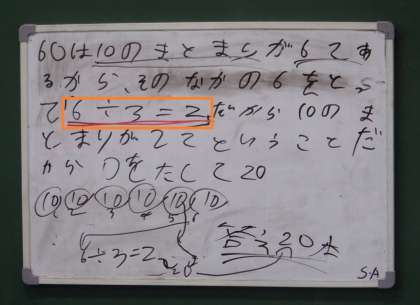 60は10のまとまりが6こあ
るから、そのなかの6をとっ
て6÷3=2、だから10のま
とまりが2こということだ
から0をたして20
10 10 10 10 10 10
6÷3=2
答え20本
S.A